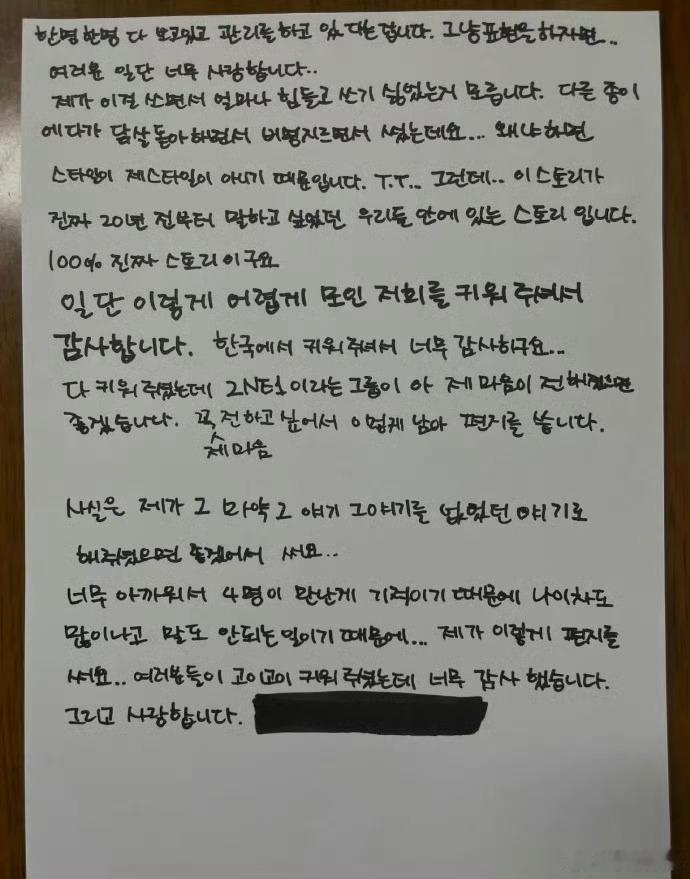 한명한명 다 보고있고 관리를 하고 있 다는 겁니다. 그냥 표현을 하자면..
여러분 일단 너무 사랑합니다..
제가 이걸 쓰면서 얼마나 힘들고 쓰기 싫었는거 모릅니다. 다른 종이
에다가 닭살 돋아 하면서 버벙지르면서 썼는데요... 왜냐하면
스타일이 제스타일이 아니기 때문입니다. T.T... 그런데.. 이 스토리가
진짜 20년 전부터 말하고 싶었던 우리들 안에 있는 스토리 입니다.
100% 진짜 스토리 이구요
일단 이렇게 어렵게 모인 저희를 키워 주셔서
감사합니다. 한국에서 키워주셔서 너무 감사하구요...
다 키워 주셨는데 2NE1 이라는 그룹이 아 제 마음이 전해졌으면
좋겠습니다. 꼭 전하고 싶어서 이렇게 남아 편지를 씁니다.
제 마음
사실은 제가 그 마약 그 얘기 그얘기를 없었던 얘기로
해주셨으면 좋겠어서 써요..
너무 아까워서 4명이 만난게 기적이기 때문에 나이차도
많이나고 말도 안되는 일이기 때문에... 제가 이렇게 편지를
써요.. 여러분들이 고이고이 키워 주셨는데 너무 감사 했습니다.
그리고 사랑합니다.